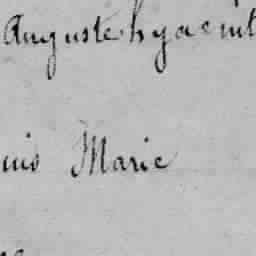 Auguste hyacint
uis Marie